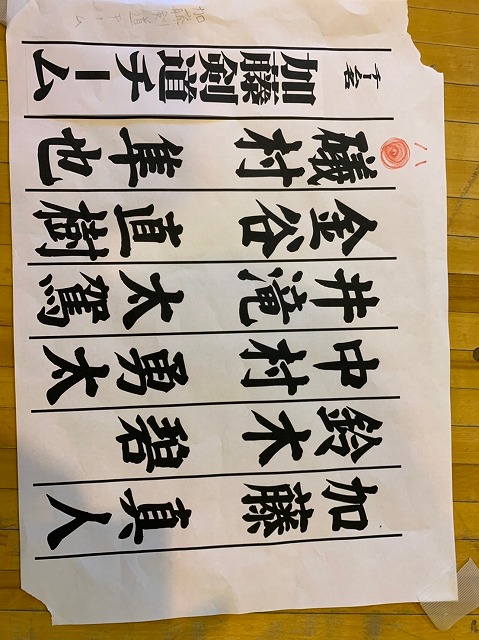 加藤剣道チーム
チーム名
加藤剣道チーム
ハ
磯村 隼也
金谷 直樹
井滝 太駕
中村 勇太
鈴木 碧
加藤 真人